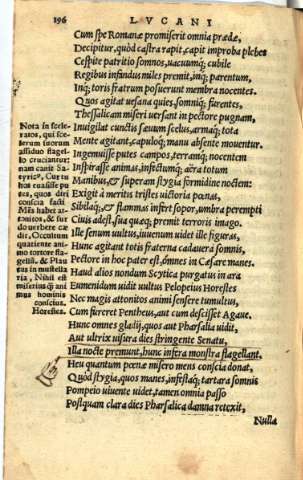 196
LVCANI
Cum spe Romanæ promiserit omnia prædæ,
Decipitur, quòd castra rapit, capit improba plebes
Cespite patritio somnos, uacuumq; cubile
Regibus infandus miles premit, inq; parentum,
Inq; toris fratrum posuerunt membra nocentes.
Quos agitat uesana quies, somniq; furentes,
Thessalicam miseri uersant in pectore pugnam,
Inuigilat cunctis sæuum scelus, armaq; tota
Mente agitant, capuloq; manu absente mouentur.
Ingemuisse putes campos, terramq; nocentem
Inspirasse animas, infectumq; aëra totum
Manibus, & superam stygia formidine noctem:
Exigit à meritis tristes uictoria pœnas,
Sibilaq; & flammas infert sopor, umbra perempti
Ciuis adest, sua quęq; premit terroris imago.
Ille senum uultus, iuuenum uidet ille figuras,
Hunc agitant totis fraterna cadauera somnis,
Pectore in hoc pater est, omnes in Cæsare manes.
Haud alios nondum Scythica purgatus in ara
Eumenidum uidit uultus Pelopeius Horestes
Nec magis attonitos animi sensere tumultus,
Cum fureret Pentheus, aut cum desisset Agaue.
Hunc omnes gladij, quos aut Pharsalia uidit,
Aut ultrix uisura dies stringente Senatu,
Illa nocte premunt, hunc infera monstra flagellant.
Heu quantum pœnæ misero mens conscia donat,
Quòd stygia, quòd manes, infestaq; tartara somnis
Pompeio uiuente uidet, tamen omnia passo
Postquam clara dies Pharsalica damna retexit,
Nulla
Nota in scele-
ratos, qui sce-
lerum suorum
assiduo flagel-
lo cruciantur:
nam canit Sa-
tyricus, Cur tu
hos euasisse pu
tas, quos diri
conscia facti
Mẽs habet at-
tonitos, & sur
do uerbere cæ
dit, Occultum
quatiente ani
mo tortore fla-
gellũ. & Plau
tus in mustella
ria, Nihil est
miseriusq́ ani
mus hominis
conscius.
Horestes.